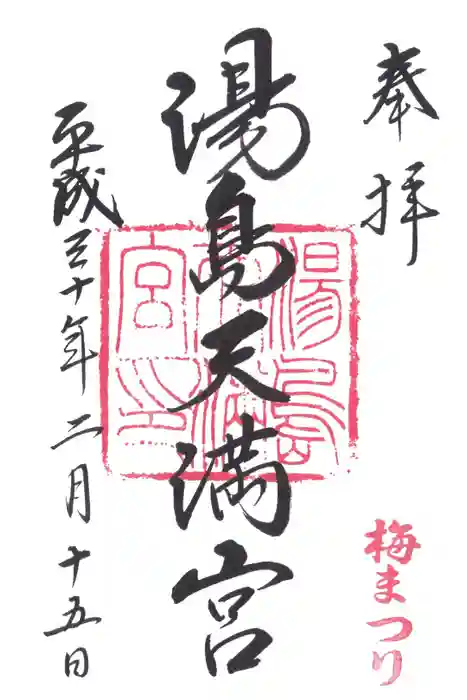 奉拝
梅まつり
湯島天満宮
湯島天満宮印
平成三十年二月十五日